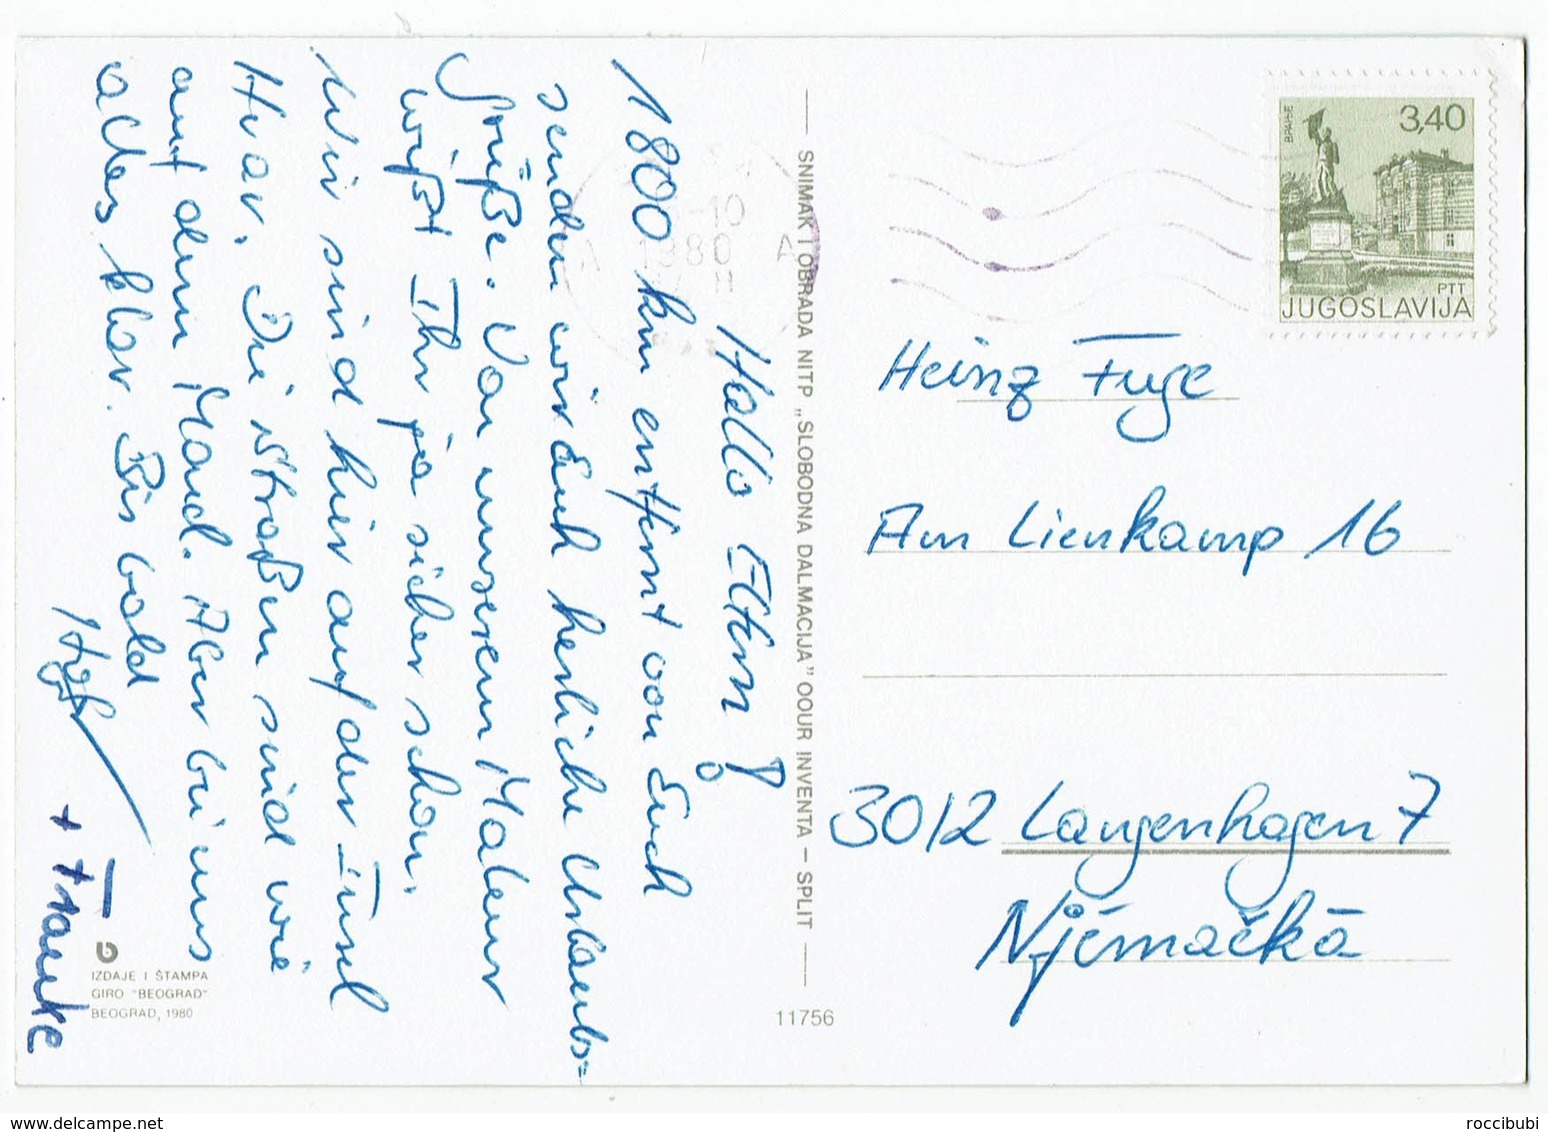 Hallo Eltern!
1800 km entfernt von Euch
senden wir Euch herzliche Urlaubs=
Grüße. Von unserem Malheur
wißt Ihr ja sicher schon.
Wir sind hier auf der Insel
Hvar. Die Straßen sind wie
auf dem Mond. Aber bei uns
alles klar. Bis bald
+ Frauke
IZDAJE I ŠTAMPA
GIRO "BEOGRAD"
BEOGRAD, 1980
SNIMAK I OBRADA NITP „SLOBODNA DALMACIJA" OOUR INVENTA – SPLIT
11756
-10
1980
A A
ВРАЊЕ
3,40
PTT
JUGOSLAVIJA
Heinz Fuge
Am Lienkamp 16
3012 Langenhagen 7
Njemačka
roccibubi